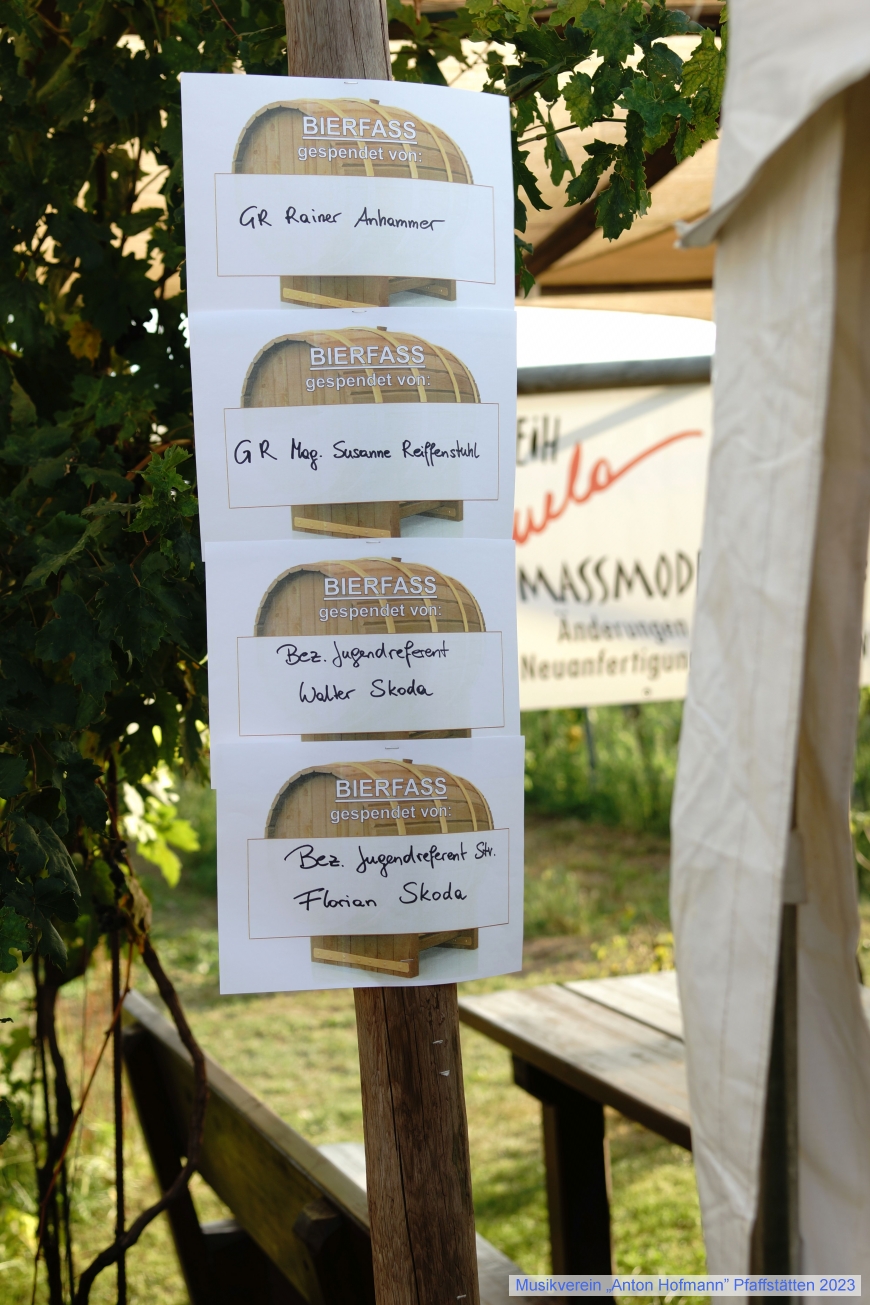 BIERFASS
gespendet von:
GR Rainer Anhammer
BIERFASS
gespendet von:
GR Mag. Susanne Reiffenstuhl
BIERFASS
gespendet von:
Bez. Jugendreferent
Walter Skoda
BIERFASS
gespendet von:
Bez. Jugendreferent Stv.
Florian Skoda
Änderungen
Musikverein „Anton Hofmann” Pfaffstätten 2023